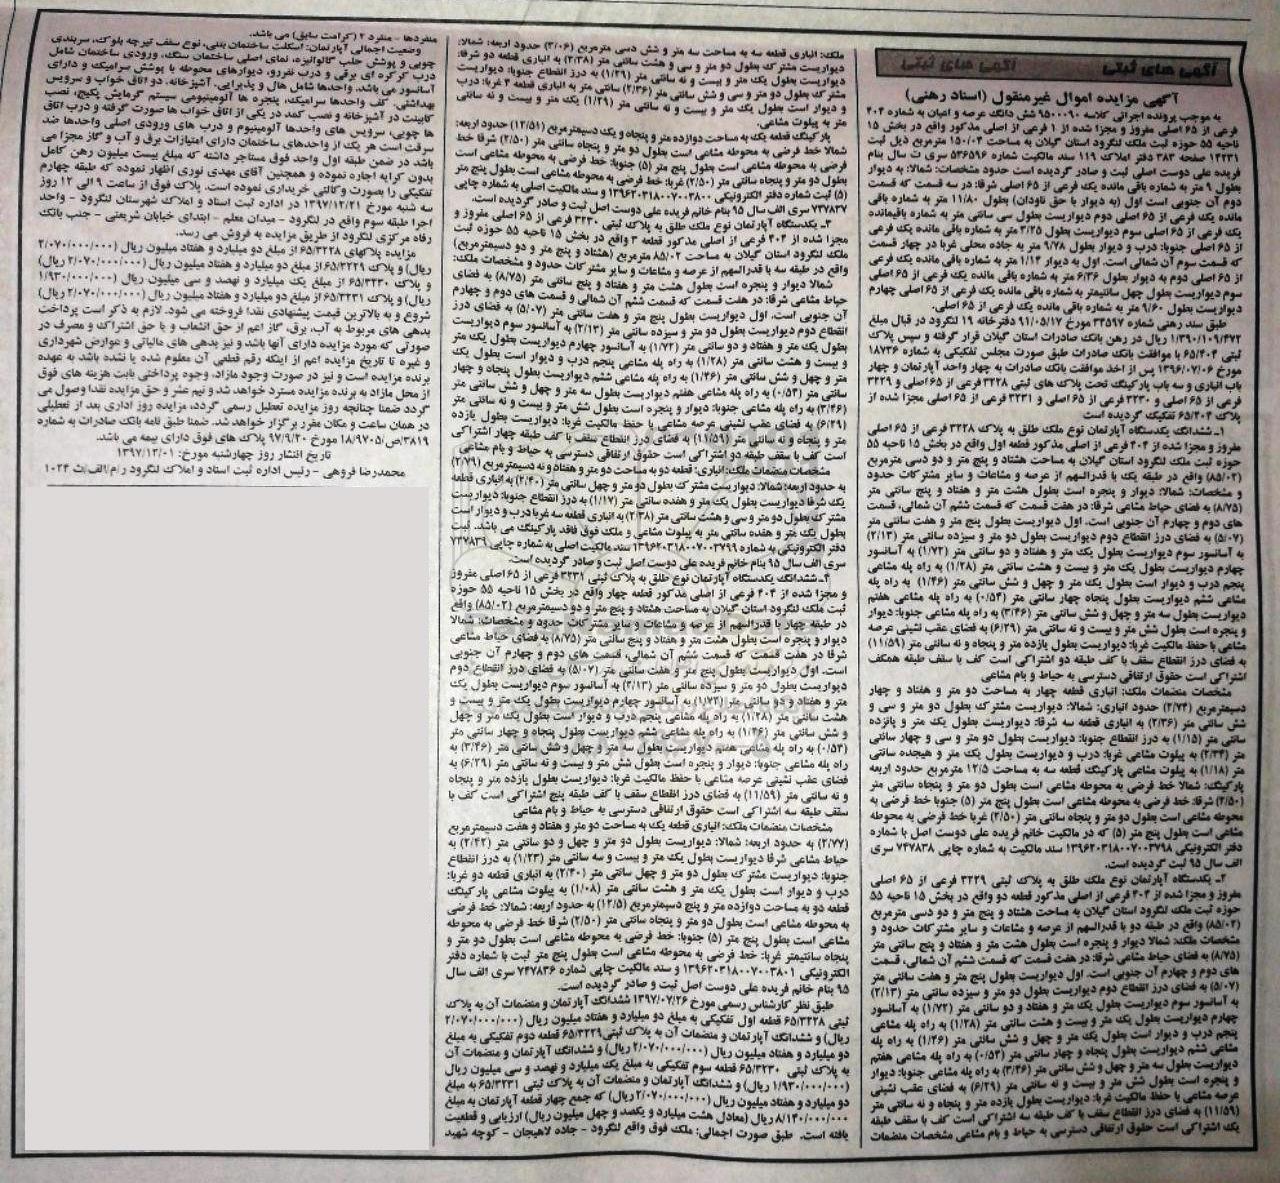 آگهی های ثبتی
آگهی های ثبتی
آگهی مزایده اموال غیرمنقول (اسناد رهنی)
به موجب پرونده اجرائی کلاسه ۹۵۰۰۰۹۰ شش دانگ عرصه و اعیان به شماره ۴۰۴
فرعی از ۶۵ اصلی مفروز و مجزا شده از ۱ فرعی از اصلی مذکور واقع در بخش ۱۵
ناحیه ۵۵ حوزه ثبت ملک لنگرود استان گیلان به مساحت ۱۵۰/۰۴ مترمربع ذیل ثبت
۱۴۲۳۱ صفحه ۳۸۳ دفتر املاک ۱۱۹ سند مالکیت شماره ۵۳۶۵۹۶ سری ت سال بنام
فریده علی دوست اصلی ثبت و صادر گردیده است حدود مشخصات: شمالا: به دیوار
بطول ۹ متر به شماره باقی مانده یک فرعی از ۶۵ اصلی شرقا: در سه قسمت که قسمت
دوم آن جنوبی است اول (به دیوار با حق ناودان) بطول ۱۱/۸۰ متر به شماره باقی
مانده یک فرعی از ۶۵ اصلی دوم دیواریست بطول سی سانتی متر به شماره باقیمانده
یک فرعی از ۶۵ اصلی سوم دیواریست بطول ۳/۲۵ متر به شماره باقی مانده یک فرعی
از ۶۵ اصلی جنوبا: درب و دیوار بطول ۹/۷۸ متر به جاده محلی غربا در چهار قسمت
که قسمت سوم آن شمالی است. اول به دیوار ۱/۱۴ متر به شماره باقی مانده یک فرعی
از ۶۵ اصلی دوم به دیوار بطول ۶/۳۶ متر به شماره باقی مانده یک فرعی از ۶۵ اصلی
سوم دیواریست بطول چهل سانتیمتر به شماره باقی مانده یک فرعی از ۶۵ اصلی چهارم
دیواریست بطول ۹/۶۰ متر به شماره باقی مانده یک فرعی از ۶۵ اصلی.
طبق سند رهنی شماره ۳۴۵۹۷ مورخ ۹۱/۰۵/۱۷ دفترخانه ۱۹ لنگرود در قبال مبلغ
۱/۳۹۰/۱۰۹/۴۷۲ ریال در رهن بانک صادرات استان گیلان قرار گرفته و سپس پلاک
ثبتی ۶۵/۴۰۴ با موافقت بانک صادرات طبق صورت مجلس تفکیکی به شماره ۱۸۷۳۶
مورخ ۱۳۹۶/۰۷/۰۶ پس از اخذ موافقت بانک صادرات به چهار واحد آپارتمان و چهار
باب انباری و سه باب پارکینگ تحت پلاک های ثبتی ۳۲۲۸ فرعی از ۶۵ اصلی و ۳۲۲۹
فرعی از ۶۵ اصلی و ۳۲۳۰ فرعی از ۶۵ اصلی و ۳۲۳۱ فرعی از ۶۵ اصلی مجزا شده از
پلاک ۶۵/۴۰۴ تفکیک گردیده است
۱ـ ششدانگ یکدستگاه آپارتمان نوع ملک طلق به پلاک ۳۲۲۸ فرعی از ۶۵ اصلی
مفروز و مجزا شده از ۴۰۴ فرعی از اصلی مذکور قطعه اول واقع در بخش ۱۵ ناحیه ۵۵
حوزه ثبت ملک لنگرود استان گیلان به مساحت هشتاد و پنج متر و دو دسی مترمربع
(۸۵/۰۲) واقع در طبقه یک با قدرالسهم از عرصه و مشاعات و سایر مشترکات حدود
و مشخصات: شمالا: دیوار و پنجره است بطول هشت متر و هفتاد و پنج سانتی متر
(۸/۷۵) به فضای حیاط مشاعی شرقا: در هفت قسمت که قسمت ششم آن شمالی، قسمت
های دوم و چهارم آن جنوبی است. اول دیواریست بطول پنج متر و هفت سانتی متر
(۵/۰۷) به فضای درز انقطاع دوم دیواریست بطول دو متر و سیزده سانتی متر (۲/۱۳)
به آسانسور سوم دیواریست بطول یک متر و هفتاد و دو سانتی متر (۱/۷۲) به آسانسور
چهارم دیواریست بطول یک متر و بیست و هشت سانتی متر (۱/۲۸) به راه پله مشاعی
پنجم درب و دیوار است بطول یک متر و چهل و شش سانتی متر (۱/۴۶) به راه پله
مشاعی ششم دیواریست بطول پنجاه چهار سانتی متر (۰/۵۴) به راه پله مشاعی هفتم
دیواریست بطول سه متر و چهل و شش سانتی متر (۳/۴۶) به راه پله مشاعی جنوبا: دیوار
و پنجره است بطول شش متر و بیست و نه سانتی متر (۶/۲۹) به فضای عقب نشینی عرصه
مشاعی با حفظ مالکیت غربا: دیواریست بطول یازده متر و پنجاه و نه سانتی متر (۱۱/۵۹)
به فضای درز انقطاع سقف با کف طبقه دو اشتراکی است کف با سقف طبقه همکف
اشتراکی است حقوق ارتفاقی دسترسی به حیاط و بام مشاعی
مشخصات منضمات ملک: انباری قطعه چهار به مساحت دو متر و هفتاد و چهار
دسیمترمربع (۲/۷۴) حدود انباری: شمالا: دیواریست مشترک بطول دو متر و سی و
شش سانتی متر (۲/۳۶) به انباری قطعه سه شرقا: دیواریست بطول یک متر و پانزده
سانتی متر (۱/۱۵) به درز انقطاع جنوبا: دیواریست بطول دو متر و سی و چهار سانتی
متر (۲/۳۴) به پیلوت مشاعی غربا: درب و دیواریست بطول یک متر و هیجده سانتی
متر (۱/۱۸) به پیلوت مشاعی پارکینگ قطعه سه به مساحت ۱۲/۵ مترمربع حدود اربعه
پارکینگ: شمالا خط فرضی به محوطه مشاعی است بطول دو متر و پنجاه سانتی متر
(۲/۵۰) شرقا: خط فرضی به محوطه مشاعی است بطول پنج متر (۵) جنوبا خط فرضی به
محوطه مشاعی است بطول دو متر و پنجاه سانتی متر (۲/۵۰) غربا خط فرضی به محوطه
مشاعی است بطول پنج متر (۵) که در مالکیت خانم فریده علی دوست اصل با شماره
دفتر الکترونیکی ۱۳۹۶۲۰۳۱۸۰۰۷۰۰۳۷۹۸ سند مالکیت به شماره چاپی ۷۴۷۸۳۸ سری
الف سال ۹۵ ثبت گردیده است.
۲ـ یکدستگاه آپارتمان نوع ملک طلق به پلاک ثبتی ۳۲۲۹ فرعی از ۶۵ اصلی
مفروز و مجزا شده از ۴۰۴ فرعی از اصلی مذکور قطعه دو واقع در بخش ۱۵ ناحیه ۵۵
حوزه ثبت ملک لنگرود استان گیلان به مساحت هشتاد و پنج متر و دو دسی مترمربع
(۸۵/۰۲) واقع در طبقه دو با قدرالسهم از عرصه و مشاعات و سایر مشترکات حدود و
مشخصات ملک: شمالا دیوار و پنجره است بطول هشت متر و هفتاد و پنج سانتی متر
(۸/۷۵) به فضای حیاط مشاعی شرقا: در هفت قسمت که قسمت ششم آن شمالی، قسمت
های دوم و چهارم آن جنوبی است. اول دیواریست بطول پنج متر و هفت سانتی متر
(۵/۰۷) به فضای درز انقطاع دوم دیواریست بطول دو متر و سیزده سانتی متر (۲/۱۳)
به آسانسور سوم دیواریست بطول یک متر و هفتاد و دو سانتی متر (۱/۷۲) به آسانسور
چهارم دیواریست بطول یک متر و بیست و هشت سانتی متر (۱/۲۸) به راه پله مشاعی
پنجم درب و دیوار است بطول یک متر و چهل و شش سانتی متر (۱/۴۶) به راه پله
مشاعی ششم دیواریست بطول پنجاه و چهار سانتی متر (۰/۵۴) به راه پله مشاعی هفتم
دیواریست بطول سه متر و چهل و شش سانتی متر (۳/۴۶) به راه پله مشاعی جنوبا: دیوار
و پنجره است بطول شش متر و بیست و نه سانتی متر (۶/۲۹) به فضای عقب نشینی
عرصه مشاعی با حفظ مالکیت غربا: دیواریست بطول یازده متر و پنجاه و نه سانتی متر
(۱۱/۵۹) به فضای درز انقطاع سقف با کف طبقه سه اشتراکی است کف با سقف طبقه
یک اشتراکی است حقوق ارتفاقی دسترسی به حیاط و بام مشاعی مشخصات منضمات
ملک: انباری قطعه سه به مساحت سه متر و شش دسی مترمربع (۳/۰۶) حدود اربعه: شمالا:
دیواریست مشترک بطول دو متر و سی و هشت سانتی متر (۲/۳۸) به انباری قطعه دو شرقا:
دیواریست بطول یک متر و بیست و نه سانتی متر (۱/۲۹) به درز انقطاع جنوبا: دیواریست
مشترک بطول دو متر و سی و شش سانتی متر (۲/۳۶) به انباری قطعه ۴ غربا: درب
و دیوار است بطول یک متر و بیست و نه سانتی متر (۱/۲۹) یک متر و بیست و نه سانتی
متر به پیلوت مشاعی.
پارکینگ قطعه یک به مساحت دوازده متر و پنجاه و یک دسیمترمربع (۱۲/۵۱) حدود اربعه:
شمالا خط فرضی به محوطه مشاعی است بطول دو متر و پنجاه سانتی متر (۲/۵۰) شرقا خط
فرضی به محوطه مشاعی است بطول پنج متر (۵) جنوبا: خط فرضی به محوطه مشاعی است
بطول دو متر و پنجاه سانتی متر (۲/۵۰) غربا: خط فرضی به محوطه مشاعی است بطول پنج متر
(۵) ثبت شماره دفتر الکترونیکی ۱۳۹۶۲۰۳۱۸۰۰۷۰۰۳۸۰۰ و سند مالکیت اصلی به شماره چاپی
۷۴۷۸۳۷ سری الف سال ۹۵ بنام خانم فریده علی دوست اصل ثبت و صادر گردیده است.
۳ـ یکدستگاه آپارتمان نوع ملک طلق به پلاک ثبتی ۳۲۳۰ فرعی از ۶۵ اصلی مفروز و
مجزا شده از ۴۰۴ فرعی از اصلی مذکور قطعه ۳ واقع در بخش ۱۵ ناحیه ۵۵ حوزه ثبت
ملک لنگرود استان گیلان به مساحت ۸۵/۰۲ مترمربع (هشتاد و پنج متر و دو دسیمترمربع)
واقع در طبقه سه با قدرالسهم از عرصه و مشاعات و سایر مشترکات حدود و مشخصات ملک:
شمالا دیوار و پنجره است بطول هشت متر و هفتاد و پنج سانتی متر (۸/۷۵) به فضای
حیاط مشاعی شرقا: در هفت قسمت که قسمت ششم آن شمالی و قسمت های دوم و چهارم
آن جنوبی است. اول دیواریست بطول پنج متر و هفت سانتی متر (۵/۰۷) به فضای درز
انقطاع دوم دیواریست بطول دو متر و سیزده سانتی متر (۲/۱۳) به آسانسور سوم دیواریست
بطول یک متر و هفتاد و دو سانتی متر (۱/۷۲) به آسانسور چهارم دیواریست بطول یک متر
و بیست و هشت سانتی متر (۱/۲۸) به راه پله مشاعی پنجم درب و دیوار است بطول یک
متر و چهل و شش سانتی متر (۱/۴۶) به راه پله مشاعی ششم دیواریست بطول پنجاه و چهار
سانتی متر (۰/۵۴) به راه پله مشاعی هفتم دیواریست بطول سه متر و چهل و شش سانتی متر
(۳/۴۶) به راه پله مشاعی جنوبا: دیوار و پنجره است بطول شش متر و بیست و نه سانتی متر
(۶/۲۹) به فضای عقب نشینی عرصه مشاعی با حفظ مالکیت غربا: دیواریست بطول یازده
متر و پنجاه و نه سانتی متر (۱۱/۵۹) به فضای درز انقطاع سقف با کف طبقه چهار اشتراکی
است کف با سقف طبقه دو اشتراکی است حقوق ارتفاقی دسترسی به حیاط و بام مشاعی
مشخصات منضمات ملک: انباری: قطعه دو به مساحت دو متر و هفتاد و نه دسیمترمربع (۲/۷۹)
به حدود اربعه: شمالا: دیواریست مشترک بطول دو متر و چهل سانتی متر (۲/۴۰) به انباری قطعه
یک شرقا دیواریست بطول یک متر و هفده سانتی متر (۱/۱۷) به درز انقطاع جنوبا: دیواریست
مشترک بطول دو متر و سی و هشت سانتی متر (۲/۳۸) به انباری قطعه سه غربا درب و دیوار است
بطول یک متر و هفده سانتی متر به پیلوت مشاعی و ملک فوق فاقد پارکینگ می باشد. ثبت
دفتر الکترونیکی به شماره ۱۳۹۶۲۰۳۱۸۰۰۷۰۰۳۷۹۹ سند مالکیت اصلی به شماره چاپی ۷۴۷۸۳۹
سری الف سال ۹۵ بنام خانم فریده علی دوست اصل ثبت و صادر گردیده است.
۴ـ ششدانگ یکدستگاه آپارتمان نوع ملک طلق به پلاک ثبتی ۳۲۳۱ فرعی از ۶۵ اصلی مفروز
و مجزا شده از ۴۰۴ فرعی از اصلی مذکور قطعه چهار واقع در بخش ۱۵ ناحیه ۵۵ حوزه
ثبت ملک لنگرود استان گیلان به مساحت هشتاد و پنج متر و دو دسیمترمربع (۸۵/۰۲) واقع
در طبقه چهار با قدرالسهم از عرصه و مشاعات و سایر مشترکات حدود و مشخصات: شمالا
دیوار و پنجره است بطول هشت متر و هفتاد و پنج سانتی متر (۸/۷۵) به فضای حیاط مشاعی
شرقا در هفت قسمت که قسمت ششم آن شمالی، قسمت های دوم و چهارم آن جنوبی
است. اول دیواریست بطول پنج متر و هفت سانتی متر (۵/۰۷) به فضای درز انقطاع دوم
دیواریست بطول دو متر و سیزده سانتی متر (۲/۱۳) به آسانسور سوم دیواریست بطول یک
متر و هفتاد و دو سانتی متر (۱/۷۲) به آسانسور چهارم دیواریست بطول یک متر و بیست و
هشت سانتی متر (۱/۲۸) به راه پله مشاعی پنجم درب و دیوار است بطول یک متر و چهل
و شش سانتی متر (۱/۴۶) به راه پله مشاعی ششم دیواریست بطول پنجاه و چهار سانتی متر
(۰/۵۴) به راه پله مشاعی هفتم دیواریست بطول سه متر و چهل و شش سانتی متر (۳/۴۶) به
راه پله مشاعی جنوبا: دیوار و پنجره است بطول شش متر و بیست و نه سانتی متر (۶/۲۹) به
فضای عقب نشینی عرصه مشاعی با حفظ مالکیت غربا: دیواریست بطول یازده متر و پنجاه
و نه سانتی متر (۱۱/۵۹) به فضای درز انقطاع سقف با کف طبقه پنج اشتراکی است کف با
سقف طبقه سه اشتراکی است حقوق ارتفاقی دسترسی به حیاط و بام مشاعی
مشخصات منضمات ملک: انباری قطعه یک به مساحت دو متر و هفتاد و هفت دسیمترمربع
(۲/۷۷) به حدود اربعه: شمالا: دیواریست بطول دو متر و چهل و دو سانتی متر (۲/۴۲) به
حیاط مشاعی شرقا دیواریست بطول یک متر و بیست و سه سانتی متر (۱/۲۳) به درز انقطاع
جنوبا: دیواریست مشترک بطول دو متر و چهل سانتی متر (۲/۴۰) به انباری قطعه دو غربا:
درب و دیوار است بطول یک متر و هشت سانتی متر (۱/۰۸) به پیلوت مشاعی پارکینگ
قطعه دو به مساحت دوازده متر و پنج دسیمترمربع (۱۲/۵) به حدود اربعه: شمالا: خط فرضی
به محوطه مشاعی است بطول دو متر و پنجاه سانتی متر (۲/۵۰) شرقا خط فرضی به محوطه
مشاعی است بطول پنج متر (۵) جنوبا: خط فرضی به محوطه مشاعی است بطول دو متر و
پنجاه سانتیمتر غربا: خط فرضی به محوطه مشاعی است بطول پنج متر ثبت با شماره دفتر
الکترونیکی ۱۳۹۶۲۰۳۱۸۰۰۷۰۰۳۸۰۱ و سند مالکیت چاپی شماره ۷۴۷۸۳۶ سری الف سال
۹۵ بنام خانم فریده علی دوست اصل ثبت و صادر گردیده است.
طبق نظر کارشناس رسمی مورخ ۱۳۹۷/۰۷/۲۶ ششدانگ آپارتمان و منضمات آن به پلاک
ثبتی ۶۵/۳۲۲۸ قطعه اول تفکیکی به مبلغ دو میلیارد و هفتاد میلیون ریال (۲/۰۷۰/۰۰۰/۰۰۰
ریال) و ششدانگ آپارتمان و منضمات آن به پلاک ثبتی ۶۵/۳۲۲۹ قطعه دوم تفکیکی به مبلغ
دو میلیارد و هفتاد میلیون ریال (۲/۰۷۰/۰۰۰/۰۰۰ ریال) و ششدانگ آپارتمان و منضمات آن
به پلاک ثبتی ۶۵/۳۲۳۰ قطعه سوم تفکیکی به مبلغ یک میلیارد و نهصد و سی میلیون ریال
(۱/۹۳۰/۰۰۰/۰۰۰ ریال) و ششدانگ آپارتمان و منضمات آن به پلاک ثبتی ۶۵/۳۲۳۱ به مبلغ
دو میلیارد و هفتاد میلیون ریال (۲/۰۷۰/۰۰۰/۰۰۰ ریال) که جمع چهار قطعه آپارتمان به مبلغ
۸/۱۴۰/۰۰۰/۰۰۰ ریال (معادل هشت میلیارد و یکصد و چهل میلیون ریال) ارزیابی و قطعیت
یافته است. طبق صورت اجمالی: ملک فوق واقع لنگرود - جاده لاهیجان - کوچه شهید
منفردها - منفرد ۲ (کرامت سابق) می باشد.
وضعیت اجمالی آپارتمان: اسکلت ساختمان بتنی، نوع سقف تیرچه بلوک، سربندی
چوبی و پوشش حلب گالوانیزه، نمای اصلی ساختمان سنگ، ورودی ساختمان شامل
درب کرکره ای برقی و درب نفررو، دیوارهای محوطه با پوشش سرامیک و دارای
آسانسور می باشد. واحدها شامل هال و پذیرایی، آشپزخانه، دو اتاق خواب و سرویس
بهداشتی. کف واحدها سرامیک، پنجره ها آلومینیومی سیستم گرمایش پکیج، نصب
کابینت در آشپزخانه و نصب کمد در یکی از اتاق خواب ها صورت گرفته و درب اتاق
ها چوبی، سرویس های واحدها آلومینیوم و درب های ورودی اصلی واحدها ضد
سرقت است هر یک از واحدهای ساختمان دارای امتیازات برق و آب و گاز مجزا می
باشد در ضمن طبقه اول واحد فوق مستاجر داشته که مبلغ بیست میلیون رهن کامل
بدون کرایه اجاره نموده و همچنین آقای مهدی نوری اظهار نموده که طبقه چهارم
تفکیکی را بصورت وکالتی خریداری نموده است. پلاک فوق از ساعت ۹ الی ۱۲ روز
سه شنبه مورخ ۱۳۹۷/۱۲/۲۱ در اداره ثبت اسناد و املاک شهرستان لنگرود - واحد
اجرا طبقه سوم واقع در لنگرود - میدان معلم - ابتدای خیابان شریعتی - جنب بانک
رفاه مرکزی لنگرود از طریق مزایده به فروش می رسد.
مزایده پلاکهای ۶۵/۳۲۲۸ از مبلغ دو میلیارد و هفتاد میلیون ریال (۲/۰۷۰/۰۰۰/۰۰۰
ریال) و پلاک ۶۵/۳۲۲۹ از مبلغ دو میلیارد و هفتاد میلیون ریال (۲/۰۷۰/۰۰۰/۰۰۰ ریال)
و پلاک ۶۵/۳۲۳۰ از مبلغ یک میلیارد و نهصد و سی میلیون ریال (۱/۹۳۰/۰۰۰/۰۰۰
ریال) و پلاک ۶۵/۳۲۳۱ از مبلغ دو میلیارد و هفتاد میلیون ریال (۲/۰۷۰/۰۰۰/۰۰۰ ریال)
شروع و به بالاترین قیمت پیشنهادی نقدا فروخته می شود. لازم به ذکر است پرداخت
بدهی های مربوط به آب، برق، گاز اعم از حق انشعاب و یا حق اشتراک و مصرف در
صورتی که مورد مزایده دارای آنها باشد و نیز بدهی های مالیاتی و عوارض شهرداری
و غیره تا تاریخ مزایده اعم از اینکه رقم قطعی آن معلوم شده یا نشده باشد به عهده
برنده مزایده است و نیز در صورت وجود مازاد، وجوه پرداختی بابت هزینه های فوق
از محل مازاد به برنده مزایده مسترد خواهد شد و نیم عشر و حق مزایده نقدا وصول می
گردد ضمنا چنانچه روز مزایده تعطیل رسمی گردد، مزایده روز اداری بعد از تعطیلی
در همان ساعت و مکان مقرر برگزار خواهد شد. ضمنا طبق نامه بانک صادرات به شماره
۳۸۱۹/ص/۱۸/۹۷۰۵ مورخ ۹۷/۹/۲۰ پلاک های فوق دارای بیمه می باشد.
تاریخ انتشار روز چهارشنبه مورخ: ۱۳۹۷/۱۲/۰۱
محمدرضا فروهی - رئیس اداره ثبت اسناد و املاک لنگرود ر/م/الف/ث ۱۰۲۴